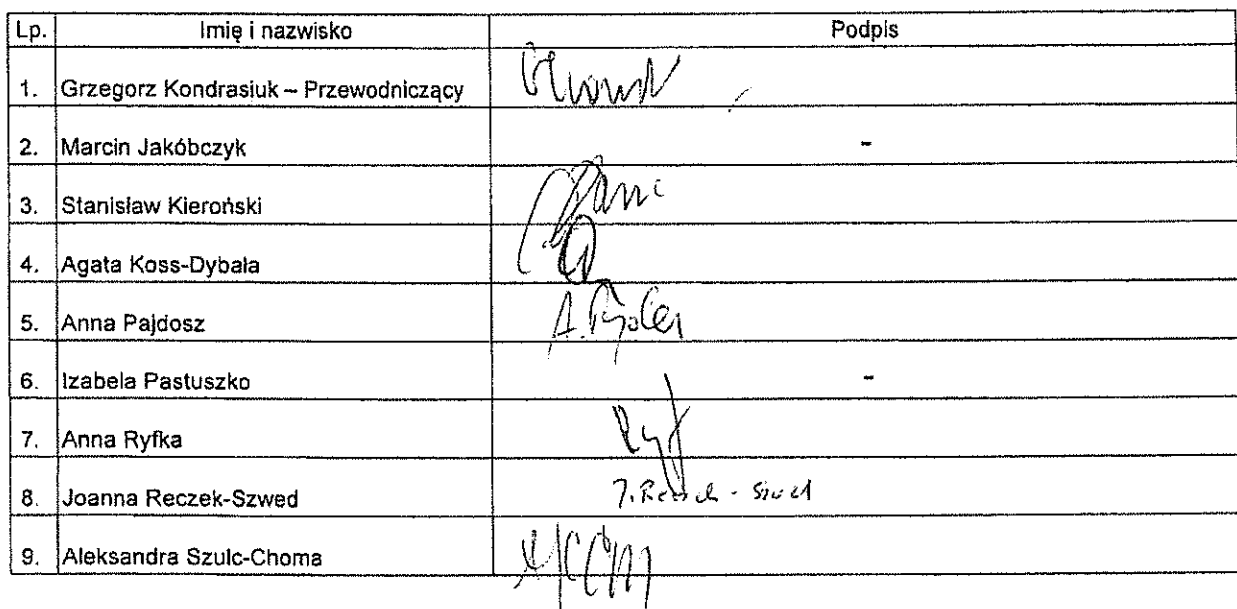 Lp. Imię i nazwisko Podpis
1. Grzegorz Kondrasiuk – Przewodniczący
2. Marcin Jakóbczyk -
3. Stanisław Kieroński
4. Agata Koss-Dybała
5. Anna Pajdosz
6. Izabela Pastuszko -
7. Anna Ryfka
8. Joanna Reczek-Szwed
9. Aleksandra Szulc-Choma